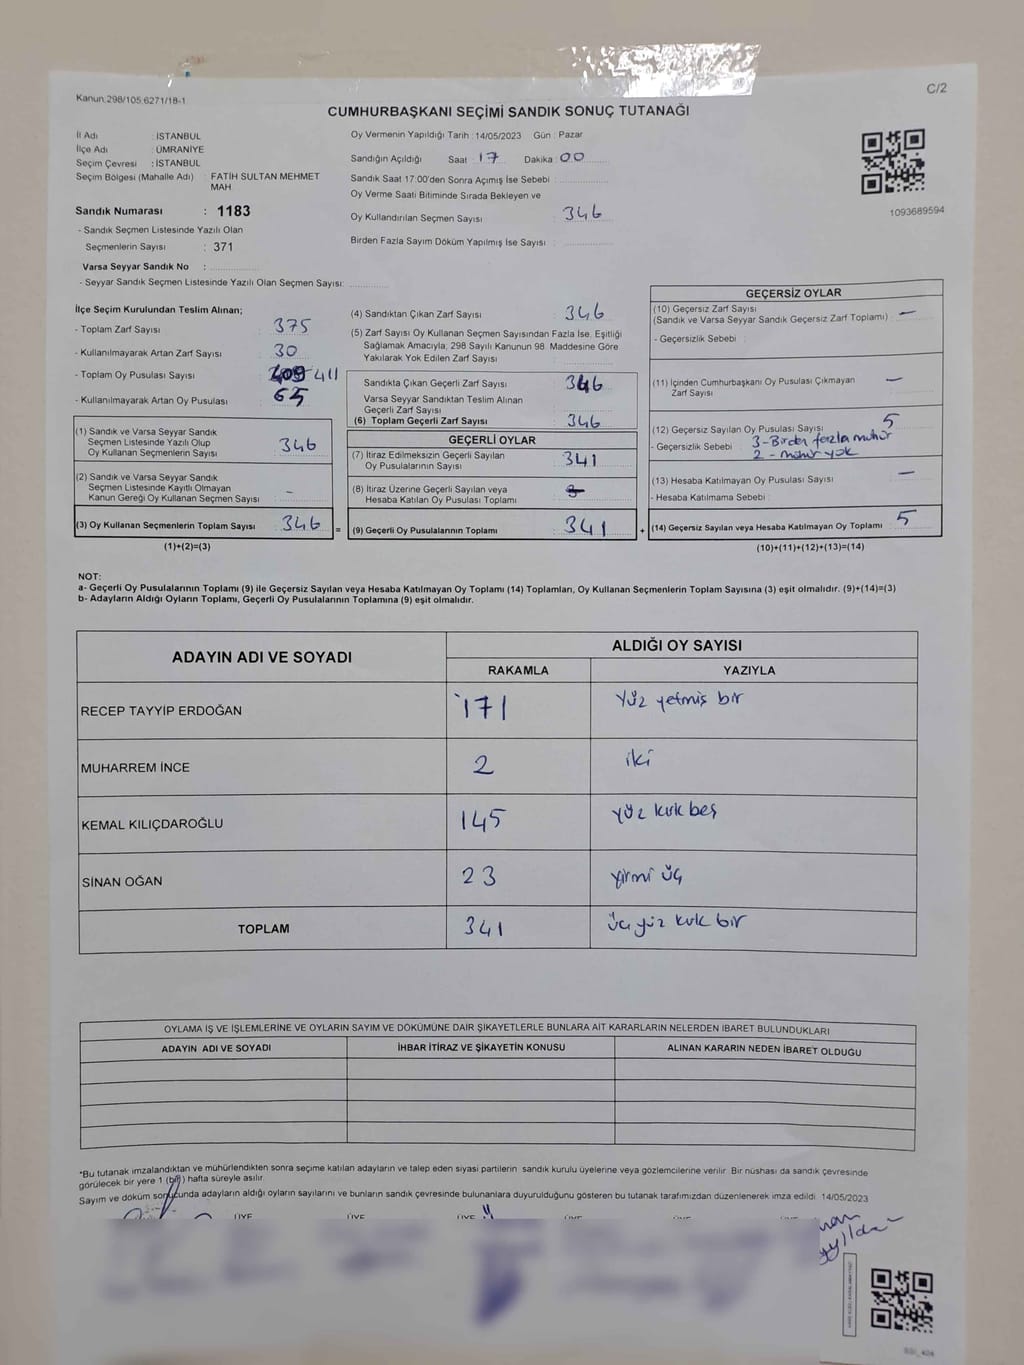 Kanun.298/105.6271/18-1
C/2
CUMHURBAŞKANI SEÇİMİ SANDIK SONUÇ TUTANAĞI
İl Adı : İSTANBUL
İlçe Adı : ÜMRANİYE
Seçim Çevresi : İSTANBUL
Seçim Bölgesi (Mahalle Adı) : FATİH SULTAN MEHMET
MAH.
Sandık Numarası : 1183
- Sandık Seçmen Listesinde Yazılı Olan
Seçmenlerin Sayısı : 371
Varsa Seyyar Sandık No :
- Seyyar Sandık Seçmen Listesinde Yazılı Olan Seçmen Sayısı:
Oy Vermenin Yapıldığı Tarih : 14/05/2023 Gün : Pazar
Sandığın Açıldığı Saat : 17 Dakika : 00
Sandık Saat 17:00'den Sonra Açımış İse Sebebi :
Oy Verme Saati Bitiminde Sırada Bekleyen ve
Oy Kullandırılan Seçmen Sayısı : 346
Birden Fazla Sayım Döküm Yapılmış İse Sayısı :
1093689594
İlçe Seçim Kurulundan Teslim Alınan;
- Toplam Zarf Sayısı : 375
- Kullanılmayarak Artan Zarf Sayısı : 30
- Toplam Oy Pusulası Sayısı : 411
- Kullanılmayarak Artan Oy Pusulası :
(1) Sandık ve Varsa Seyyar Sandık
Seçmen Listesinde Yazılı Olup
Oy Kullanan Seçmenlerin Sayısı : 346
(2) Sandık ve Varsa Seyyar Sandık
Seçmen Listesinde Kayıtlı Olmayan
Kanun Gereği Oy Kullanan Seçmen Sayısı : -
(3) Oy Kullanan Seçmenlerin Toplam Sayısı : 346 =
(1)+(2)=(3)
(4) Sandıktan Çıkan Zarf Sayısı : 346
(5) Zarf Sayısı Oy Kullanan Seçmen Sayısından Fazla İse, Eşitliği
Sağlamak Amacıyla; 298 Sayılı Kanunun 98. Maddesine Göre
Yakılarak Yok Edilen Zarf Sayısı :
Sandıkta Çıkan Geçerli Zarf Sayısı : 346
Varsa Seyyar Sandıktan Teslim Alınan
Geçerli Zarf Sayısı :
(6) Toplam Geçerli Zarf Sayısı : 346
GEÇERLİ OYLAR
(7) İtiraz Edilmeksizin Geçerli Sayılan
Oy Pusulalarının Sayısı : 341
(8) İtiraz Üzerine Geçerli Sayılan veya
Hesaba Katılan Oy Pusulası Toplamı :
(9) Geçerli Oy Pusulalarının Toplamı : 341 +
GEÇERSİZ OYLAR
(10) Geçersiz Zarf Sayısı
(Sandık ve Varsa Seyyar Sandık Geçersiz Zarf Toplamı) : -
- Geçersizlik Sebebi :
(11) İçinden Cumhurbaşkanı Oy Pusulası Çıkmayan
Zarf Sayısı : -
(12) Geçersiz Sayılan Oy Pusulası Sayısı : 5
- Geçersizlik Sebebi : 3-Birden fazla mühür
2 - mühür yok
(13) Hesaba Katılmayan Oy Pusulası Sayısı : -
- Hesaba Katılmama Sebebi :
(14) Geçersiz Sayılan veya Hesaba Katılmayan Oy Toplamı : 5
(10)+(11)+(12)+(13)=(14)
NOT:
a- Geçerli Oy Pusulalarının Toplamı (9) ile Geçersiz Sayılan veya Hesaba Katılmayan Oy Toplamı (14) Toplamları, Oy Kullanan Seçmenlerin Toplam Sayısına (3) eşit olmalıdır. (9)+(14)=(3)
b- Adayların Aldığı Oyların Toplamı, Geçerli Oy Pusulalarının Toplamına (9) eşit olmalıdır.
ADAYIN ADI VE SOYADI
ALDIĞI OY SAYISI
RAKAMLA YAZIYLA
RECEP TAYYİP ERDOĞAN 171 Yüz yetmiş bir
MUHARREM İNCE 2 iki
KEMAL KILIÇDAROĞLU 145 yüz kırk beş
SİNAN OĞAN 23 yirmi üç
TOPLAM 341 üç yüz kırk bir
OYLAMA İŞ VE İŞLEMLERİNE VE OYLARIN SAYIM VE DÖKÜMÜNE DAİR ŞİKAYETLERLE BUNLARA AİT KARARLARIN NELERDEN İBARET BULUNDUKLARI
ADAYIN ADI VE SOYADI İHBAR İTİRAZ VE ŞİKAYETİN KONUSU ALINAN KARARIN NEDEN İBARET OLDUĞU
*Bu tutanak imzalandıktan ve mühürlendikten sonra seçime katılan adayların ve talep eden siyasi partilerin sandık kurulu üyelerine veya gözlemcilerine verilir. Bir nüshası da sandık çevresinde
görülecek bir yere 1 (bir) hafta süreyle asılır.
Sayım ve döküm sonucunda adayların aldığı oyların sayılarını ve bunların sandık çevresinde bulunanlara duyurulduğunu gösteren bu tutanak tarafımızdan düzenlenerek imza edildi. 14/05/2023
ÜYE ÜYE ÜYE ÜYE ÜYE ÜYE